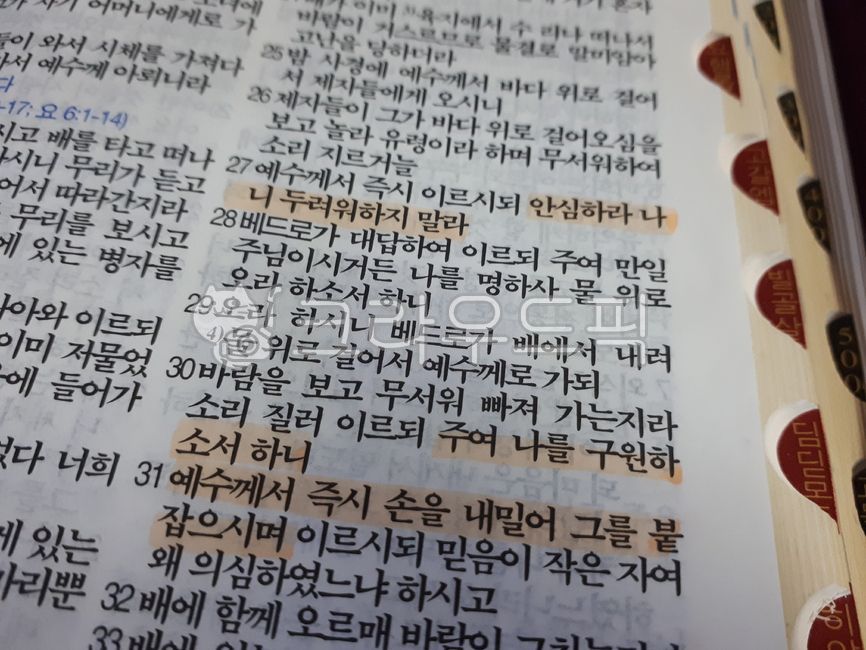 어머니에게로 가
들이 와서 시체를 가져다
가서 예수께 아뢰니라
-17; 요 6:1-14)
시고 배를 타고 떠나
사시니 무리가 듣고
어서 따라간지라
무리를 보시고
에 있는 병자를
아와 이르되
이미 저물었
을에 들어가
없다 너희
에 있는
가리뿐
배가 이미 육지에서 수 리나 떠나서
바람이 거스르므로 물결로 말미암아
고난을 당하더라
25 밤 사경에 예수께서 바다 위로 걸어
서 제자들에게 오시니
26 제자들이 그가 바다 위로 걸어오심을
보고 놀라 유령이라 하며 무서워하여
소리 지르거늘
27 예수께서 즉시 이르시되 안심하라 나
니 두려워하지 말라
28 베드로가 대답하여 이르되 주여 만일
주님이시거든 나를 명하사 물 위로
오라 하소서 하니
29 오라 하시니 베드로가 배에서 내려
4)물 위로 걸어서 예수께로 가되
30 바람을 보고 무서워 빠져 가는지라
소리 질러 이르되 주여 나를 구원하
소서 하니
31 예수께서 즉시 손을 내밀어 그를 붙
잡으시며 이르시되 믿음이 작은 자여
왜 의심하였느냐 하시고
32 배에 함께 오르매 바람이 그치는지라
33 배에
고갈엡
빌골살
딤딛몬
히
400
500
크라우드픽